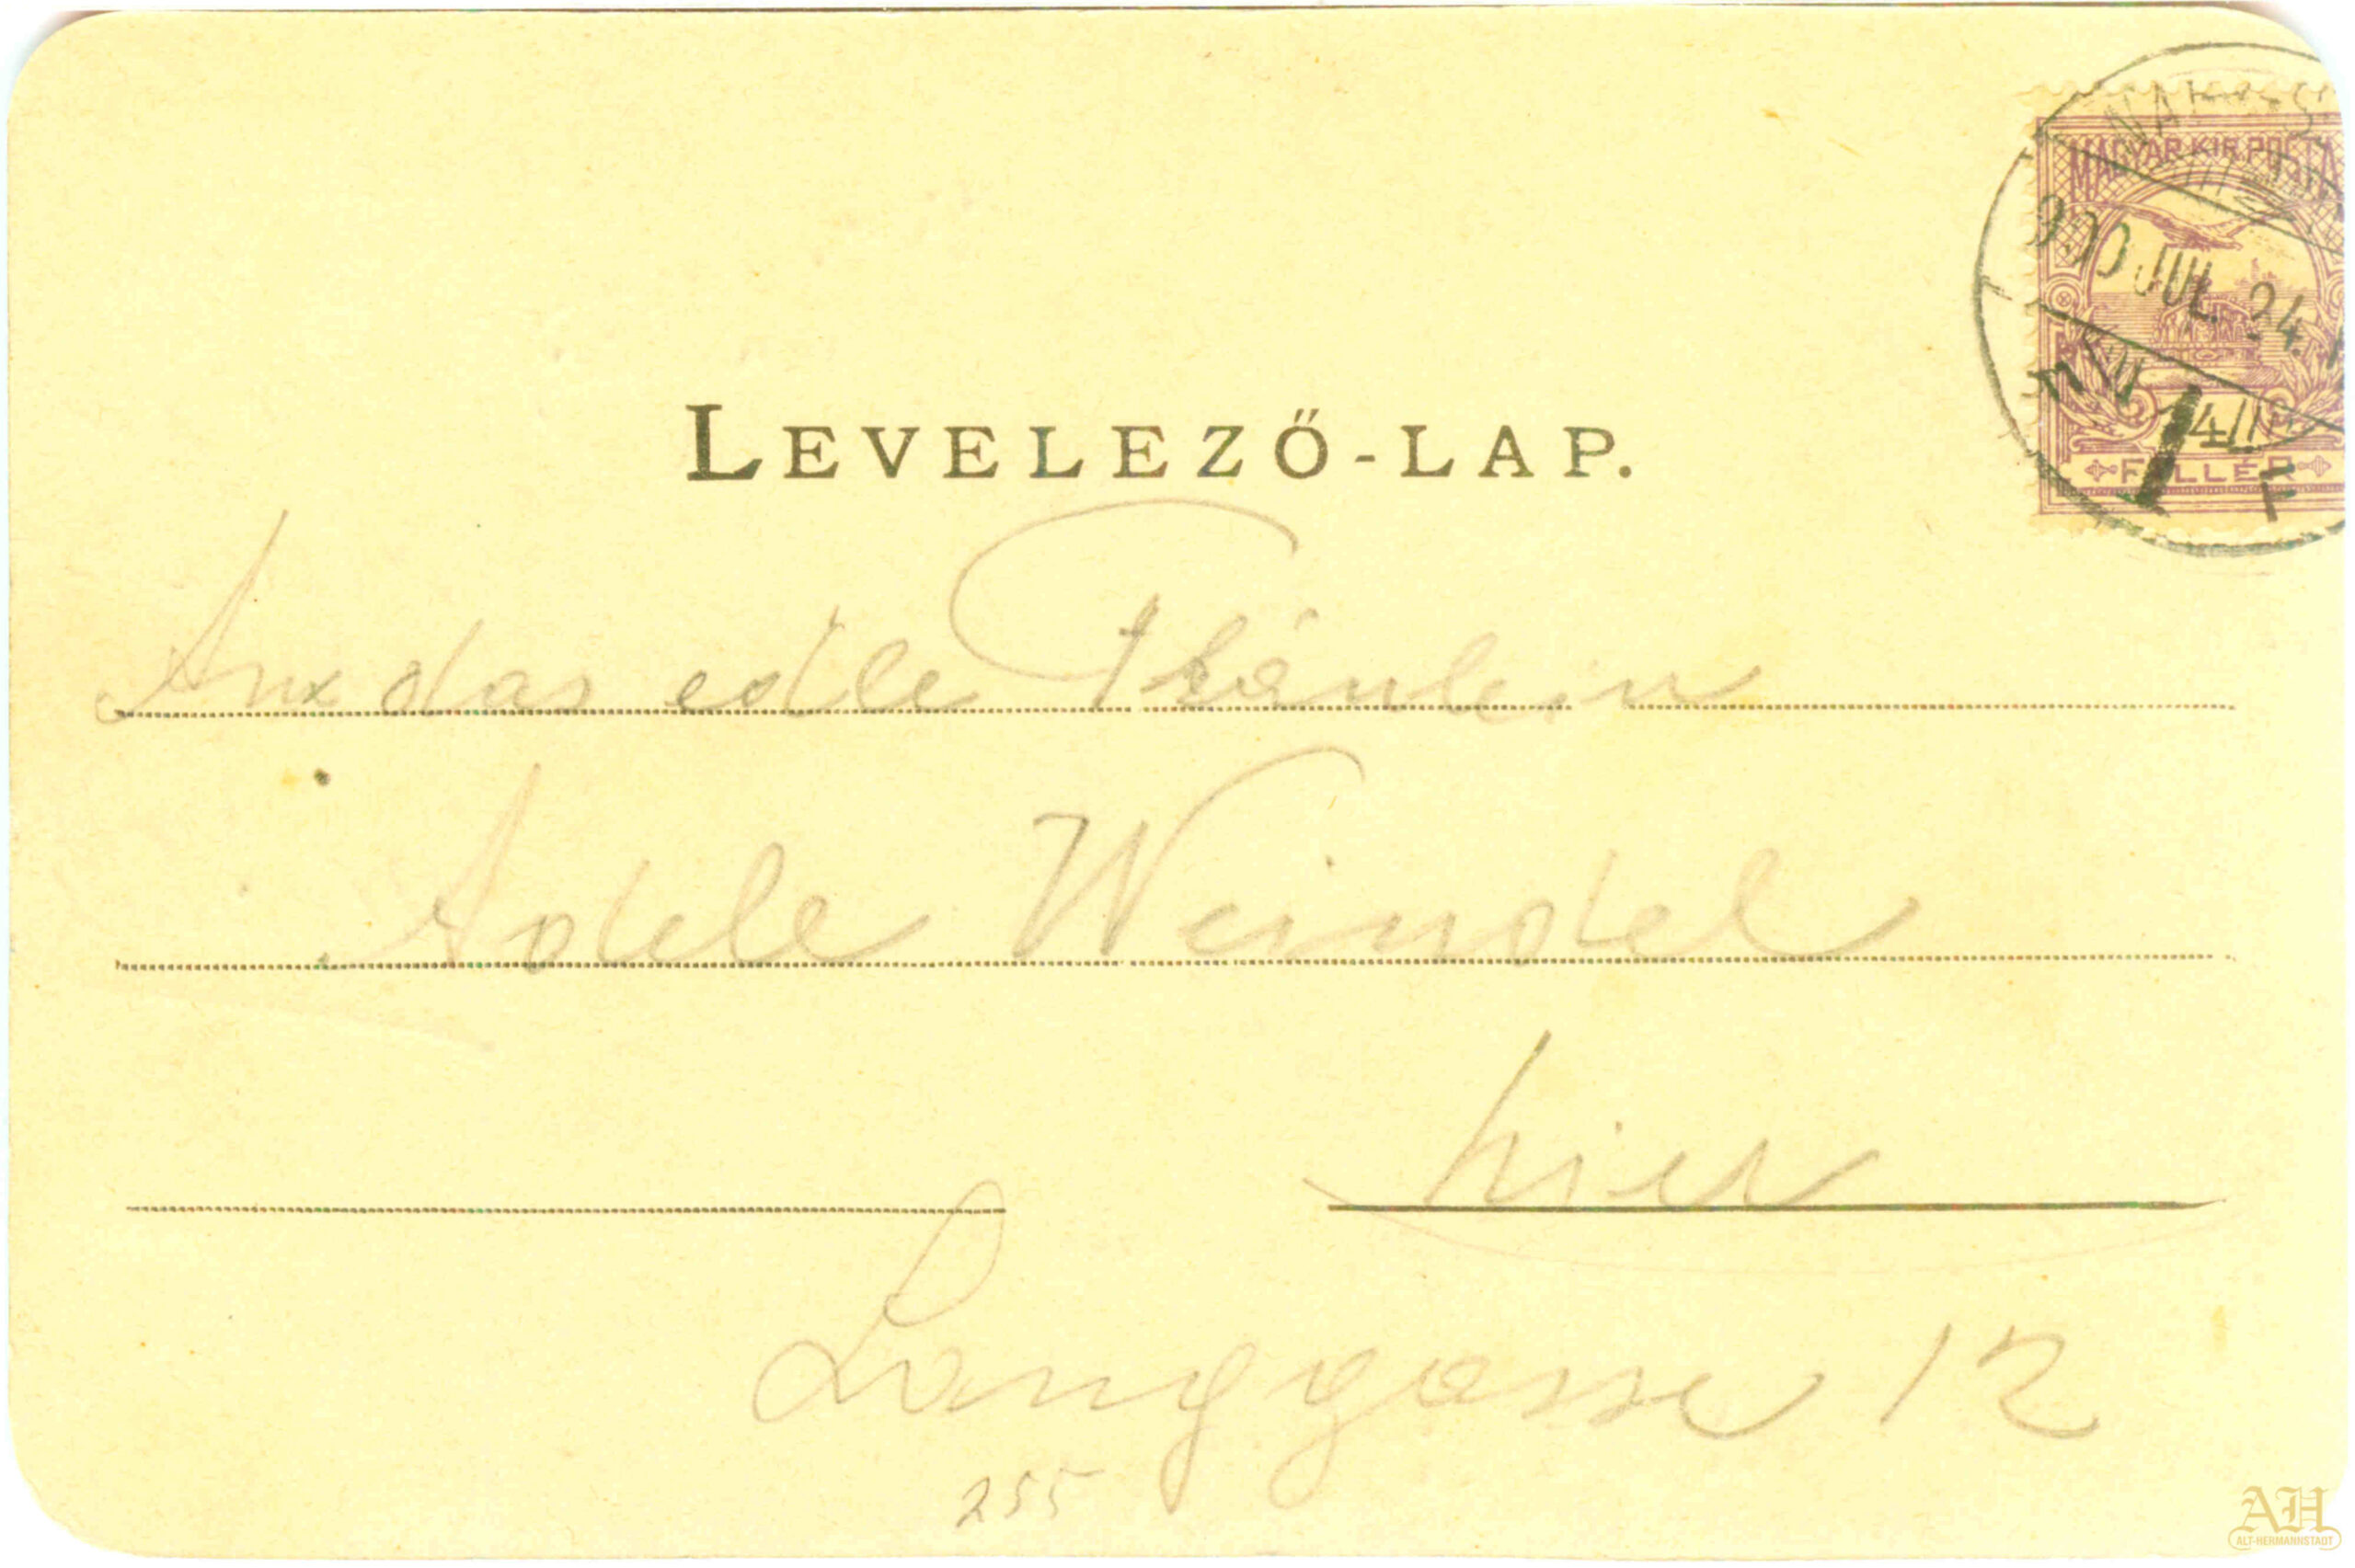 MAGYAR KIR. POSTA
900 JUL. 24.
FILLÉR
LEVELEZŐ-LAP.
An das edle Fräulein
Adele Weindel
hier
Langgasse 12
255
AH
ALT-HERMANNSTADT